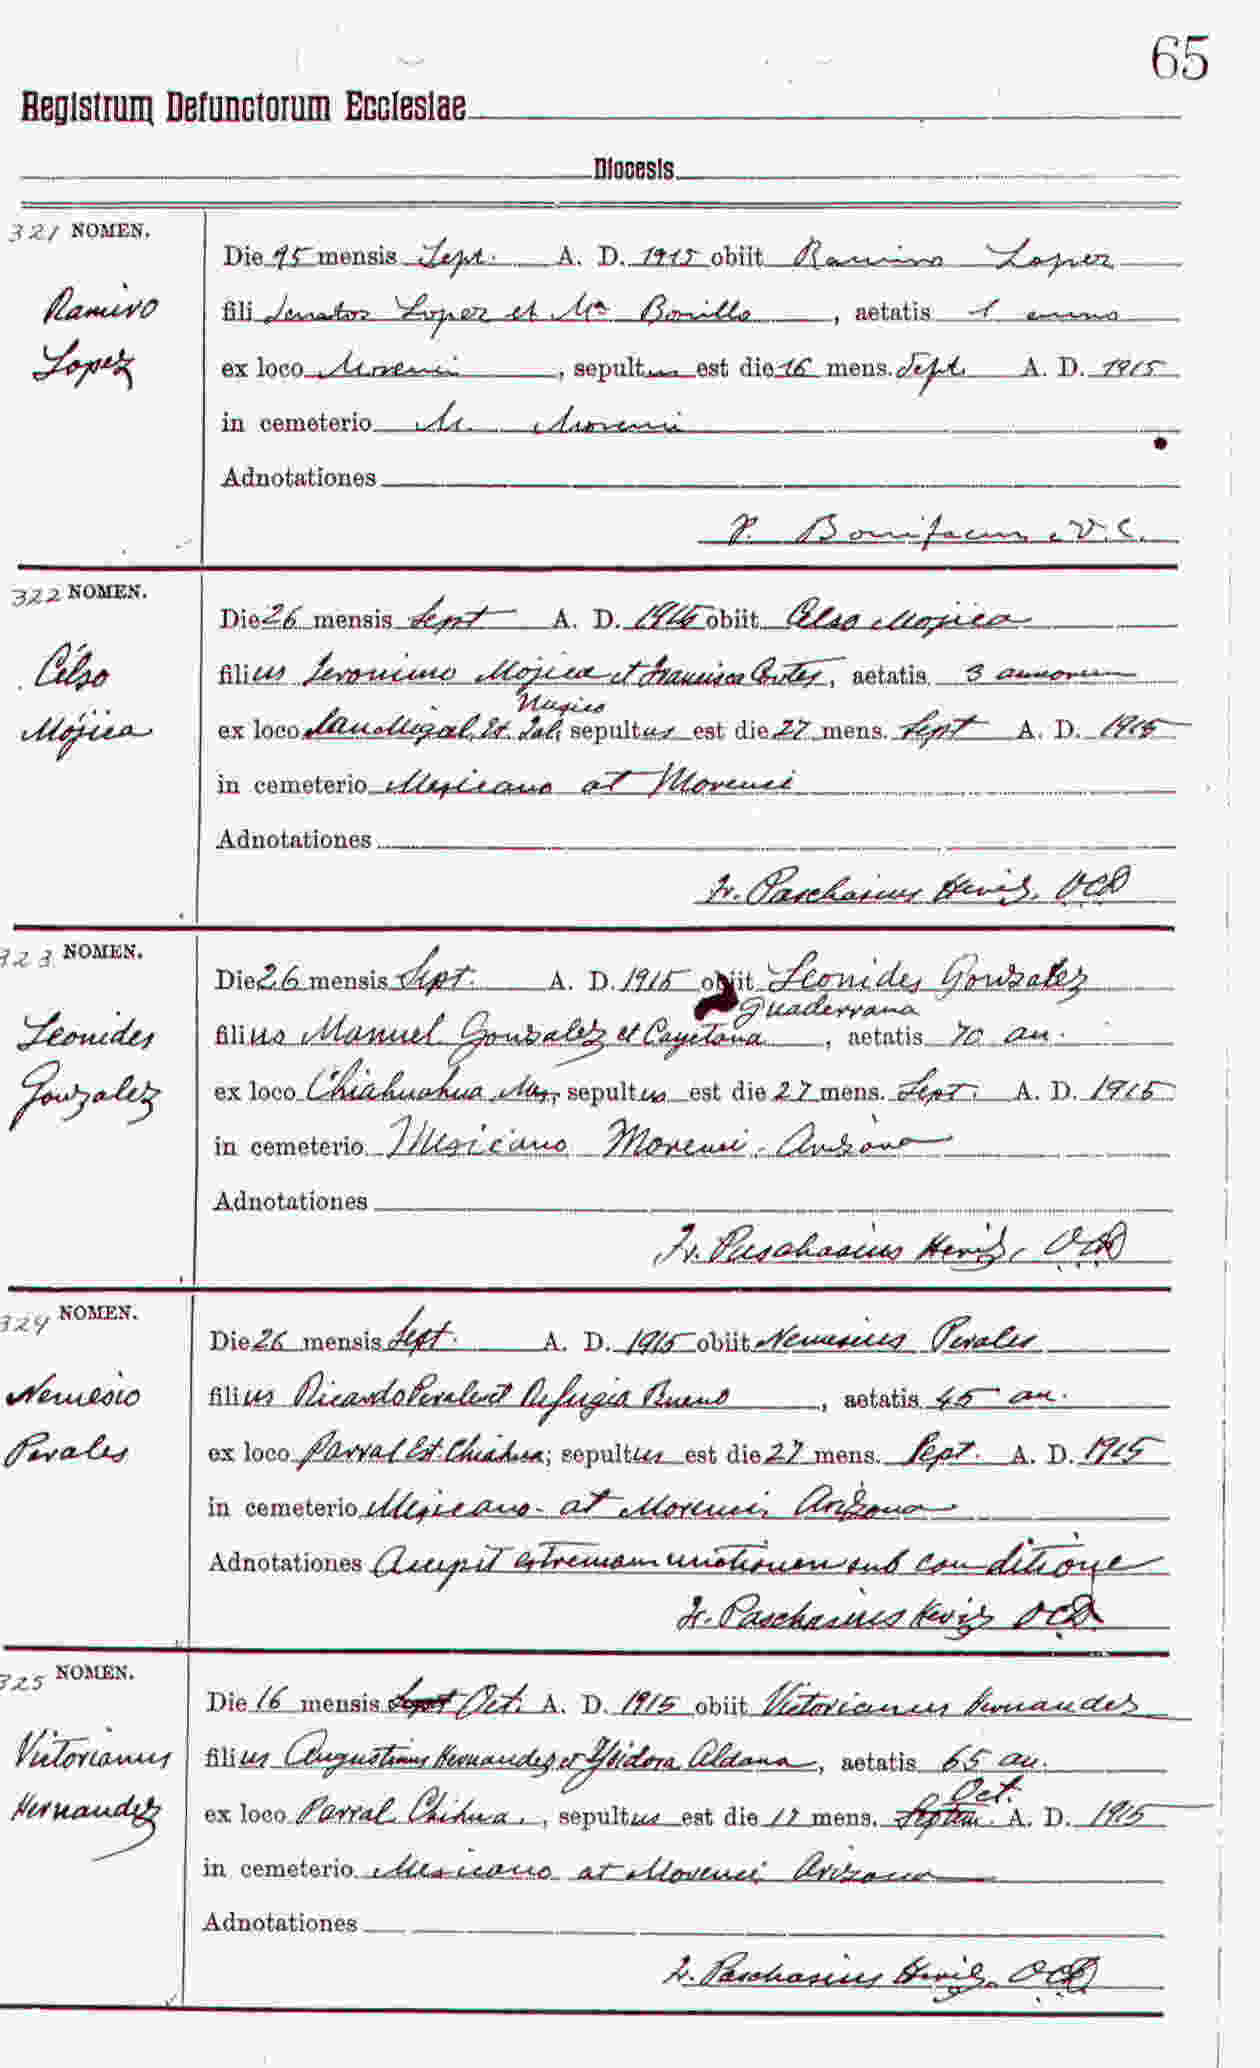 65
Registrum Defunctorum Ecclesiae
Diocesis
321 NOMEN.
Ramiro
Lopez
Die 15 mensis Sept. A. D. 1915 obiit Ramiro Lopez
fili Lopez et Ma Bonillo, aetatis 1 anno
ex loco Morenci, sepultus est die 16 mens. Sept. A. D. 1915
in cemeterio M. Morenci
Adnotationes
P. Bonifacius
322 NOMEN.
Celso
Mojica
Die 26 mensis Sept A. D. 1915 obiit Celso Mojica
filius Jeronimo Mojica et Francisca Cortes, aetatis 3 annorum
Mexico
ex loco San Migal, Et. Jal, sepultus est die 27 mens. Sept A. D. 1915
in cemeterio Mexicano at Morenci
Adnotationes
Fr. Paschasius Heriz, OCD
323 NOMEN.
Leonides
Gonzalez
Die 26 mensis Sept. A. D. 1915 obiit Leonides Gonzalez
Guaderrana
filius Manuel Gonzalez et Cayetana, aetatis 70 an.
ex loco Chiahuahua Mex., sepultus est die 27 mens. Sept. A. D. 1915
in cemeterio Mexicano Morenci. Arizona
Adnotationes
Fr. Paschasius Heriz, OCD
324 NOMEN.
Nemesio
Perales
Die 26 mensis Sept. A. D. 1915 obiit Nemesius Perales
filius Ricardo Perales et Refugia Bueno, aetatis 45 an.
ex loco Parral Est. Chiahua; sepultus est die 27 mens. Sept. A. D. 1915
in cemeterio Mexicano at Morenci, Arizona
Adnotationes Accepit extremam unctionem sub conditione
Fr. Paschasius Heriz OCD.
325 NOMEN.
Victorianus
Hernandez
Die 16 mensis Sept Oct. A. D. 1915 obiit Victorianus Hernandez
filius Augustinus Hernandez et Ysidora Aldana, aetatis 65 an.
Oct.
ex loco Parral Chihua., sepultus est die 17 mens. Septem. A. D. 1915
in cemeterio Mexicano at Morenci Arizona
Adnotationes
Fr. Paschasius Heriz, OCD